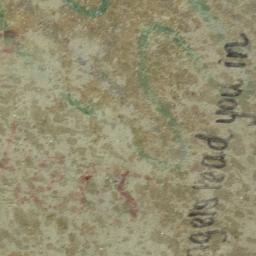 ngels lead you in